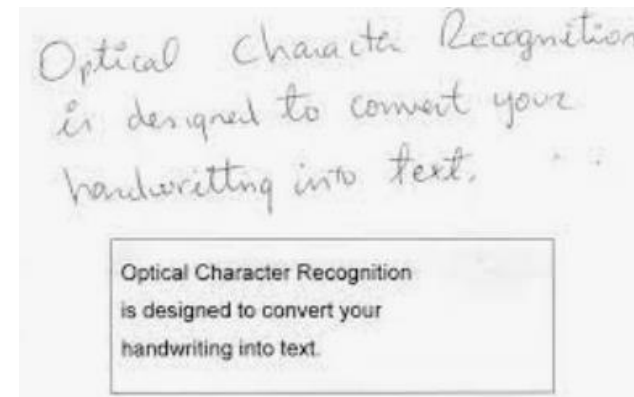 Optical Character Recognition
is designed to convert your
handwritting into text.
Optical Character Recognition
is designed to convert your
handwriting into text.